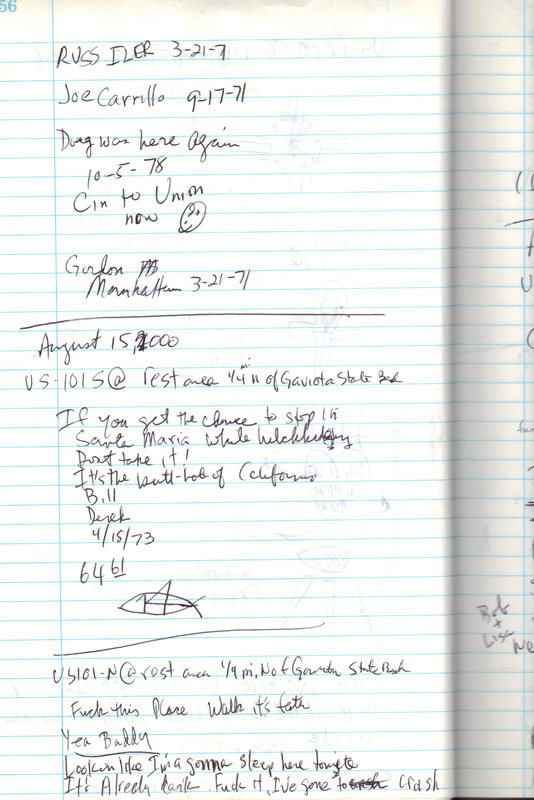 56
RUSS ILER 3-21-7
Joe Carrillo 9-17-71
Doug was here Again
10-5-78
Cin to Union
now
Gordon
Manhattan 3-21-71
August 15, 2000
US-101 S @ rest area 1/4 mi n of Gaviota State Bch
If you get the chance to stop in
Santa Maria while hitchhiking
Dont take it!
It's the butt-hole of California
Bill
Derek
4/15/73
64 61
US101-N @ rest area 1/4 mi. N of Gaviota State Bch
Fuck this Place Walk it's
Yea Buddy
Lookin like I'm a gonna sleep here tonight
It's Already dark. Fuck it, I've gone to crash
Bob
+
Lisa
Ne